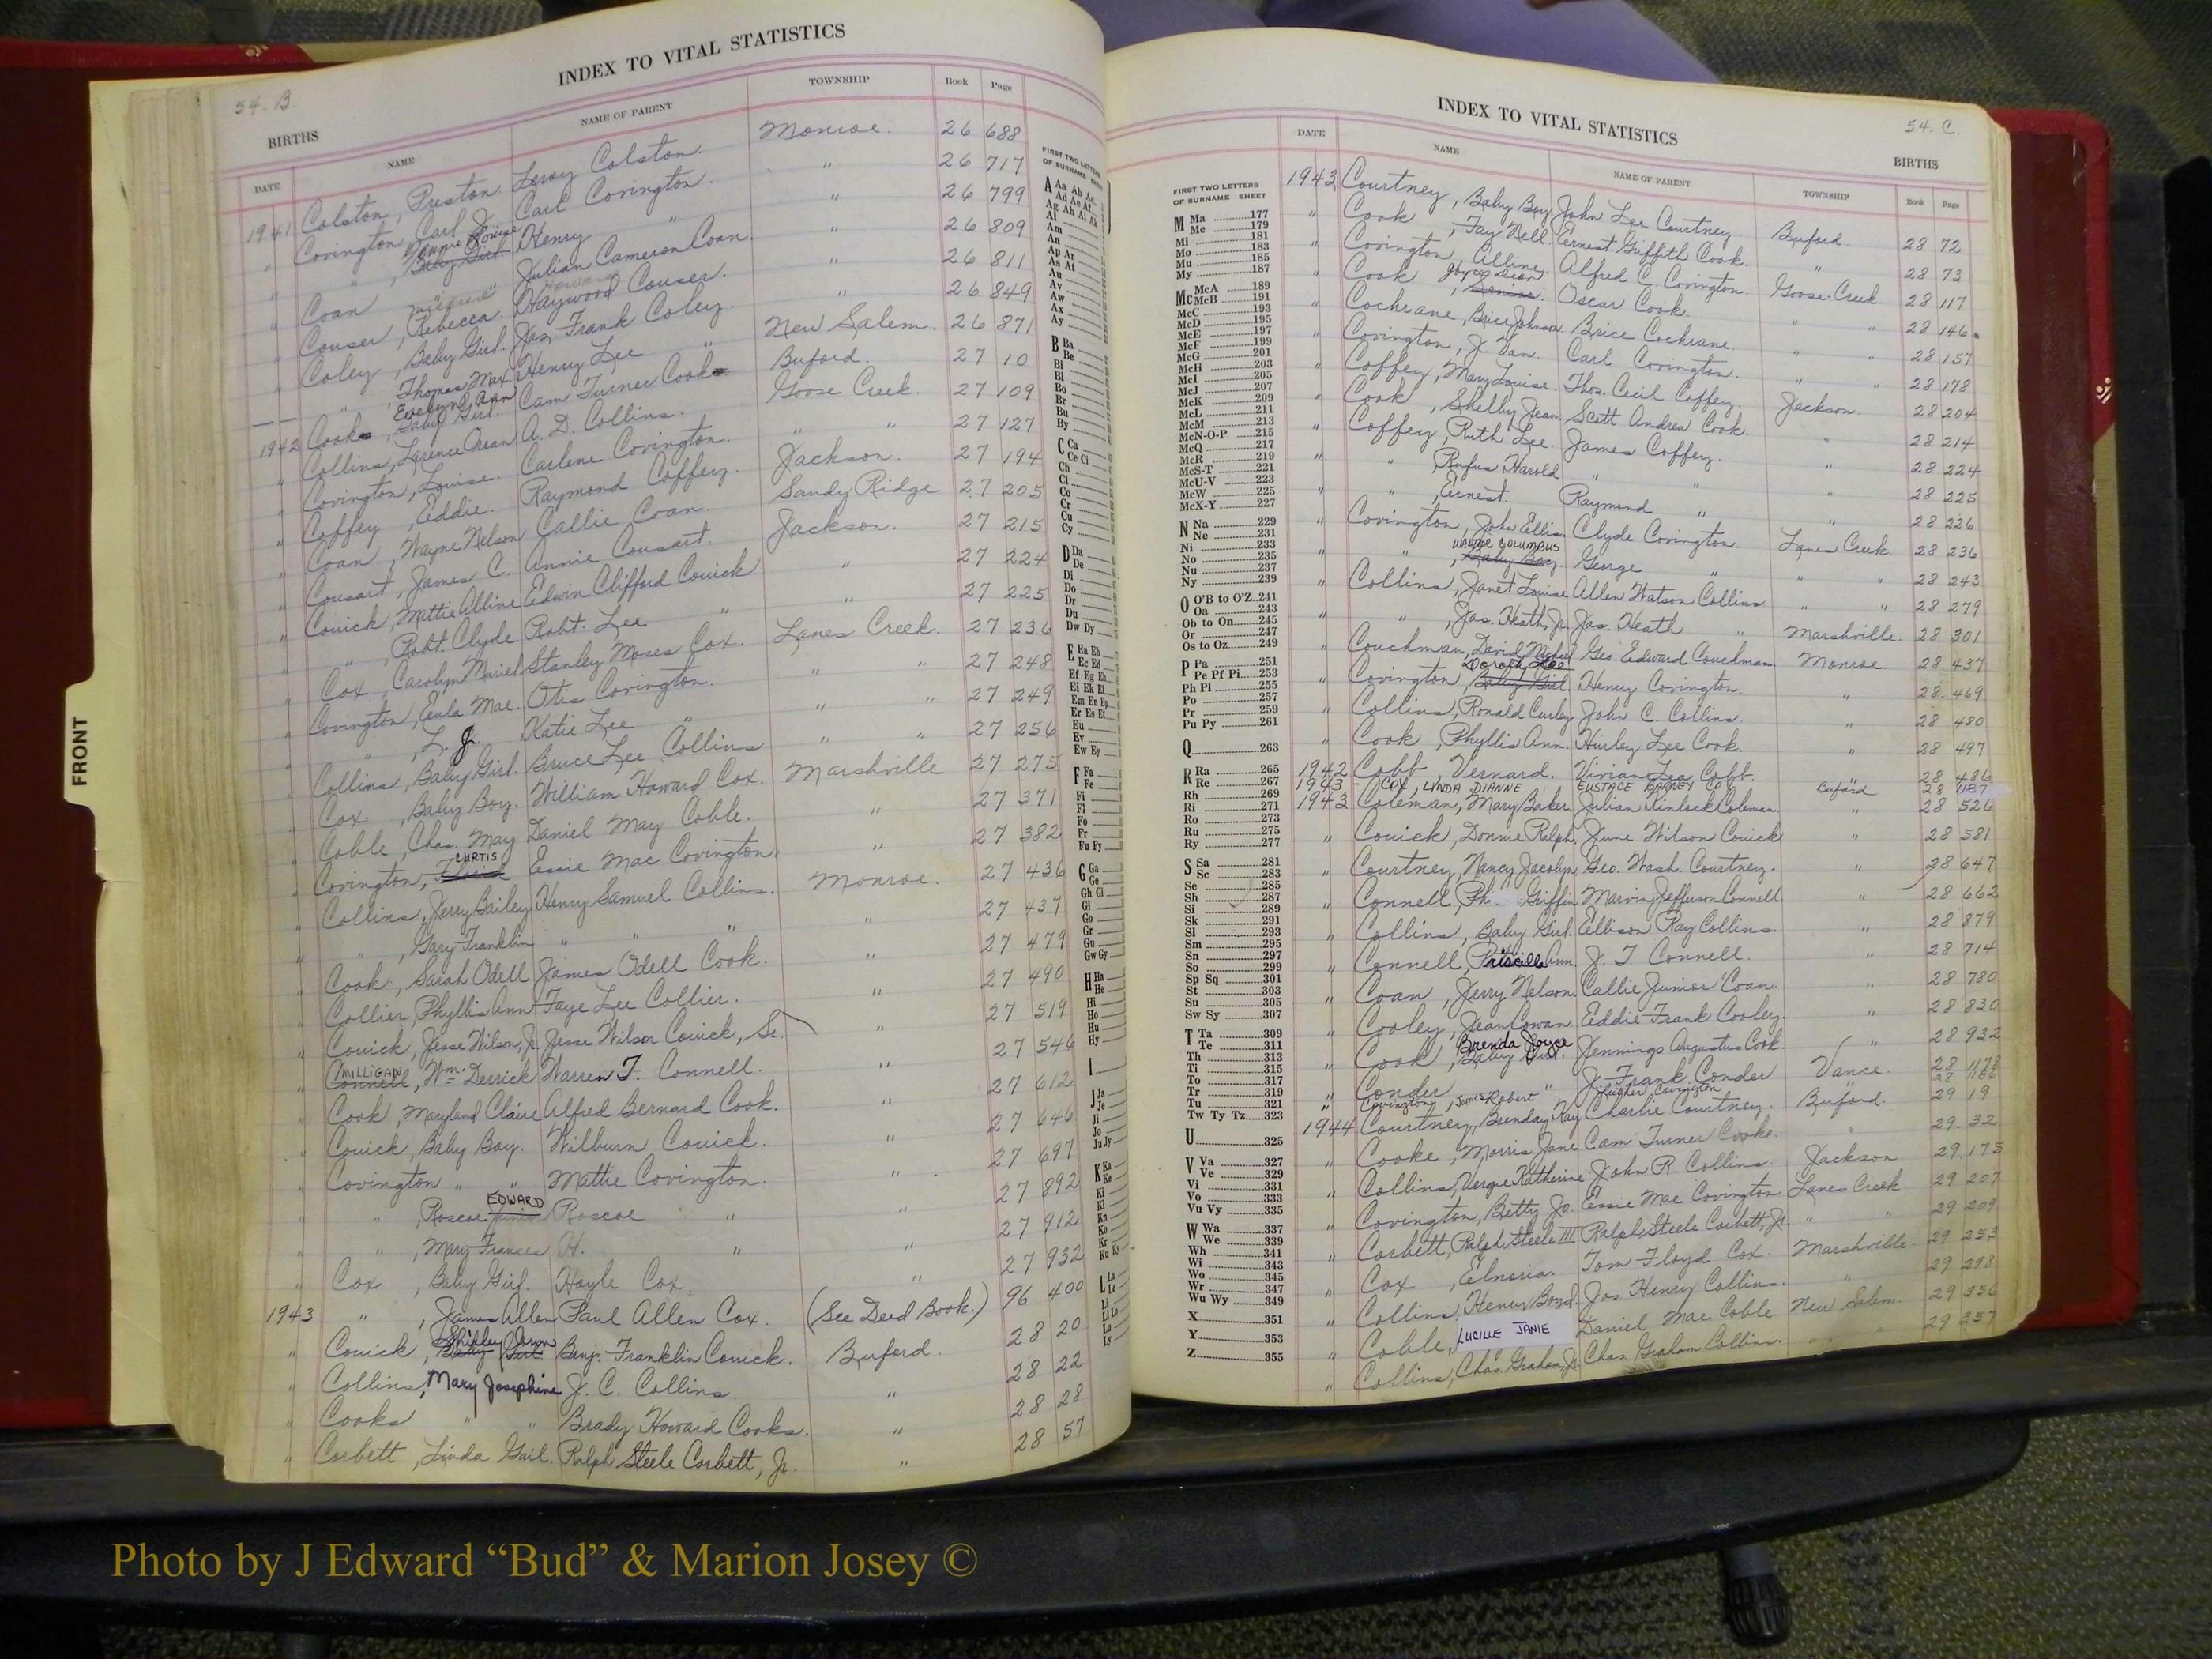 54-B.
INDEX TO VITAL STATISTICS
BIRTHS
DATE NAME NAME OF PARENT TOWNSHIP Book Page
1941 Colston, Preston Leroy Colston. Monroe. 26 688
" Covington, Carl Jr. Carl Covington. " 26 717
" " , Baby Girl. Henry " " 26 799
" Coan Julian Cameron Coan. " 26 809
" Couser, Rebecca Haywood Couser. " 26 811
" Coley, Baby Girl. Jas. Frank Coley. " 26 849
" " , Thomas Max Henry Lee " New Salem. 26 871
1942 Cook, Evelyn Ann Baby Girl. Cam Turner Cook Buford. 27 10
" Collins, Larence Ocean A. D. Collins. Goose Creek. 27 109
" Covington, Louise. Carlene Covington. " " 27 127
" Coffey, Eddie. Raymond Coffey. Jackson. 27 194
" Coan, Wayne Nelson Callie Coan. Sandy Ridge 27 205
" Cousart, James C. Annie Cousart. Jackson. 27 215
" Couick, Mattie Alline Edwin Clifford Couick " 27 224
" " , Robt. Clyde Robt. Lee " " 27 225
" Cox, Carolyn Muriel Stanley Moses Cox. Lanes Creek. 27 236
" Covington, Eula Mae. Otis Covington. " " 27 248
" " , L. J. Katie Lee " " " 27 249
" Collins, Baby Girl. Bruce Lee Collins " " 27 256
" Cox, Baby Boy. William Howard Cox. Marshville 27 275
" Coble, Chas. May Daniel May Coble. " 27 371
" Covington, CURTIS Essie Mae Covington. " 27 382
" Collins, Jerry Bailey Henry Samuel Collins. Monroe. 27 436
" " , Gary Franklin " " " " 27 437
" Cook, Sarah Odell James Odell Cook. " 27 479
" Collier, Phyllis Ann Faye Lee Collier. " 27 490
" Couick, Jesse Wilson, Jr. Jesse Wilson Couick, Sr. " 27 519
" MILLIGAN Connell, Wm. Derrick Warren T. Connell. " 27 546
" Cook, Maryland Claire Alfred Bernard Cook. " 27 612
" Couick, Baby Boy. Wilburn Couick. " 27 646
" Covington " " Mattie Covington. " 27 697
" " , Roscoe EDWARD Junior Roscoe " " 27 892
" " , Mary Frances H. " " 27 912
" Cox, Baby Girl. Hoyle Cox. " 27 932
1943 " , James Allen Paul Allen Cox. (See Deed Book.) 96 400
" Couick, Shirley Dawn Baby Girl. Benj. Franklin Couick. Buford. 28 20
" Collins, Mary Josephine J. C. Collins. " 28 22
" Cooks " " Brady Howard Cooks. " 28 28
" Corbett, Linda Gail. Ralph Steele Corbett, Jr. " 28 57
FIRST TWO LETTERS OF SURNAME SHEET
A Aa Ab Ac
Ad Ae Af
Ag Ah Ai Ak
Al
Am
An
Ap Ar
As At
Au
Av
Aw
Ax
Ay
B Ba
Be
Bi
Bl
Bo
Br
Bu
By
C Ca
Ce Ci
Ch
Cl
Co
Cr
Cu
Cy
D Da
De
Di
Do
Dr
Du
Dw Dy
E Ea Eb
Ec Ed
Ef Eg Eh
Ei Ek El
Em En Ep
Er Es Et
Eu
Ev
Ew Ey
F Fa
Fe
Fi
Fl
Fo
Fr
Fu Fy
G Ga
Ge
Gh Gi
Gl
Go
Gr
Gu
Gw Gy
H Ha
He
Hi
Ho
Hu
Hy
I
J Ja
Je
Ji
Jo
Ju Jy
K Ka
Ke
Ki
Kl
Kn
Ko
Kr
Ku Ky
L La
Le
Li
Ll Lo
Lu
Ly
FRONT
54-C.
INDEX TO VITAL STATISTICS
BIRTHS
DATE NAME NAME OF PARENT TOWNSHIP Book Page
FIRST TWO LETTERS OF SURNAME SHEET
M Ma 177
Me 179
Mi 181
Mo 183
Mu 185
My 187
Mc McA 189
McB 191
McC 193
McD 195
McE 197
McF 199
McG 201
McH 203
McI 205
McJ 207
McK 209
McL 211
McM 213
McN-O-P 215
McQ 217
McR 219
McS-T 221
McU-V 223
McW 225
McX-Y 227
N Na 229
Ne 231
Ni 233
No 235
Nu 237
Ny 239
O O'B to O'Z 241
Oa 243
Ob to On 245
Or 247
Os to Oz 249
P Pa 251
Pe Pf Pi 253
Ph Pl 255
Po 257
Pr 259
Pu Py 261
Q 263
R Ra 265
Re 267
Rh 269
Ri 271
Ro 273
Ru 275
Ry 277
S Sa 281
Sc 283
Se 285
Sh 287
Si 289
Sk 291
Sl 293
Sm 295
Sn 297
So 299
Sp Sq 301
St 303
Su 305
Sw Sy 307
T Ta 309
Te 311
Th 313
Ti 315
To 317
Tr 319
Tu 321
Tw Ty Tz 323
U 325
V Va 327
Ve 329
Vi 331
Vo 333
Vu Vy 335
W Wa 337
We 339
Wh 341
Wi 343
Wo 345
Wr 347
Wu Wy 349
X 351
Y 353
Z 355
1943 Courtney, Baby Boy. John Lee Courtney Buford. 28 72
" Cook, Fay Nell. Ernest Griffith Cook. " 28 73
" Covington, Alline. Alfred C. Covington. Goose Creek 28 117
" Cook, Joyce Dean Oscar Cook. " " 28 146
" Cochrane, Brice Johnson Brice Cochrane. " " 28 157
" Covington, J. Van. Carl Covington. " " 28 178
" Coffey, Mary Louise. Thos. Cecil Coffey. Jackson. 28 204
" Cook, Shelby Jean. Scott Andrew Cook. " 28 214
" Coffey, Ruth Lee. James Coffey. " 28 224
" " Rufus Harold " " " 28 225
" " , Ernest. Raymond " " 28 226
" Covington, John Ellis. Clyde Covington. Lanes Creek 28 236
" " , WALTER COLUMBUS Baby Boy. George " " " 28 243
" Collins, Janet Louise Allen Watson Collins. " " 28 279
" " , Jas. Heath, Jr. Jas. Heath " Marshville. 28 301
" Couchman, David Michael Geo. Edward Couchman. Monroe. 28 437
" Covington, Dorothy Lee Baby Girl. Henry Covington. " 28 469
" Collins, Ronald Curley John C. Collins. " 28 480
" Cook, Phyllis Ann. Hurley Lee Cook. " 28 497
1942 Cobb Vernard. Vivian Lea Cobb. " 28 486
1943 COX, LYNDA DIANNE EUSTACE BARNEY COX Buford 28 1187
1943 Coleman, Mary Baker Julian Kinlock Coleman " 28 526
" Couick, Donnie Ralph. June Wilson Couick " 28 581
" Courtney, Nancy Jacolyn Geo. Wash. Courtney. " 28 647
" Connell, Ph. Griffin Marvin Jefferson Connell. " 28 662
" Collins, Baby Girl. Ellison Ray Collins. " 28 879
" Connell, Priscilla Ann. J. T. Connell. " 28 714
" Coan, Jerry Nelson. Callie Junior Coan. " 28 780
" Cooley, Jean Cowan. Eddie Frank Cooley. " 28 830
" Cook, Brenda Joyce Baby Girl. Jennings Augustus Cook. " 28 932
" Conder " " J. Frank Conder Vance. 28
" Covington, James Robert Luther Covington 28
1944 Courtney, Brenday Kay Charlie Courtney. Buford. 29 19
" Cooke, Morris Jane Cam Turner Cooke. " 29 32
" Collins, Vergie Katherine John R. Collins. Jackson. 29 175
" Covington, Betty Jo. Essie Mae Covington Lanes Creek. 29 207
" Corbett, Ralph Steele III Ralph Steele Corbett, Jr. " " 29 209
" Cox, Elnoria. Tom Floyd Cox. Marshville. 29 253
" Collins, Henry Boyd. Jas. Henry Collins. " 29 298
" Coble, LUCILLE JANIE Daniel Mae Coble New Salem. 29 356
" Collins, Chas. Graham, Jr. Chas. Graham Collins. " " 29 357
Photo by J Edward “Bud” & Marion Josey ©